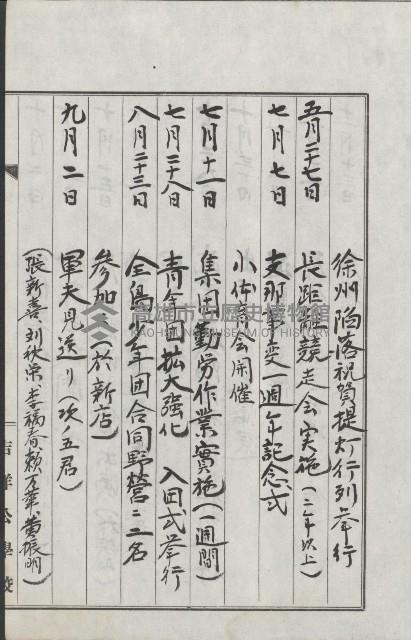 徐州陥落祝賀提灯行列挙行
五月二十七日　長距離競走会実施(三年以上)
七月七日　支那事変一週年記念式
小使会開催
七月十一日　集団勤労作業實施(一週間)
七月二十八日　青年団拡大強化　入団式挙行
八月二十三日　全島少年団合同野営ニ二名
参加ス(於新店)
九月二日　軍夫見送リ(次ノ五君)
(張新喜、刘秋栄、李福春、頼万華、黄振明)
吉洋公學校
高雄市立歷史博物館
KAOHSIUNG MUSEUM OF HISTORY